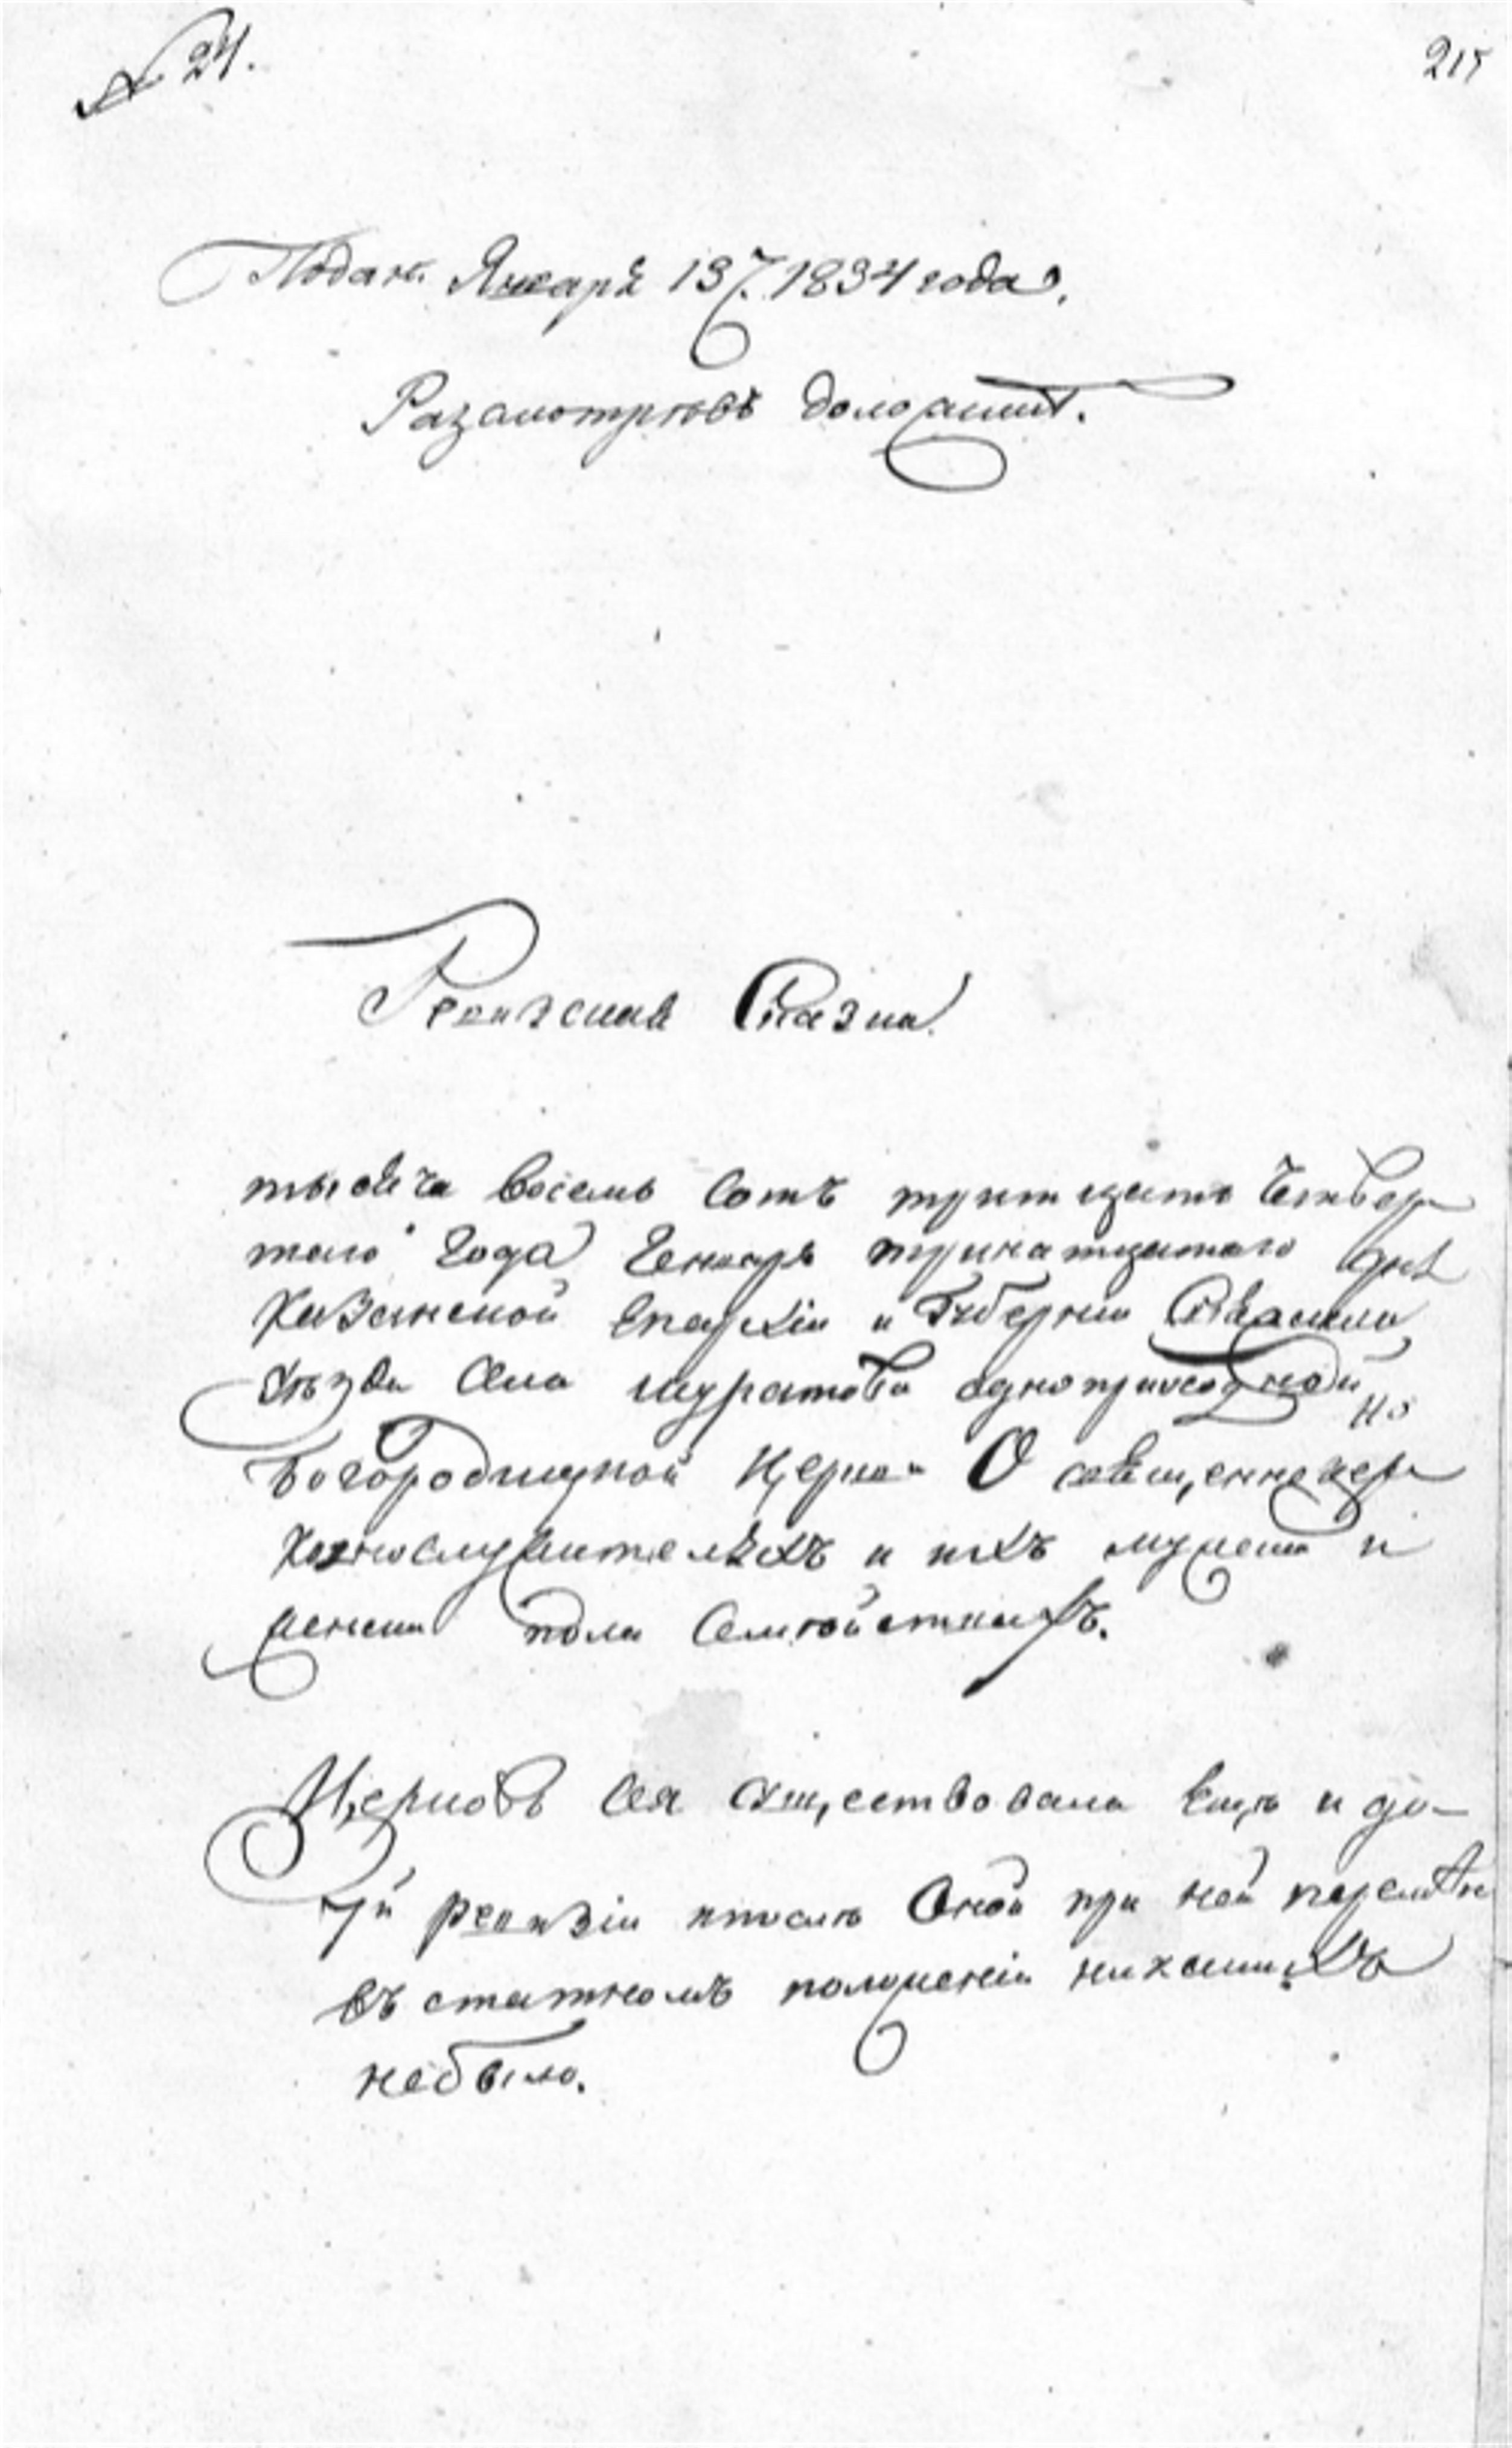 № 24.
215
Подан. Января 13. 1834 года.
Разсмотревъ доложить.
Ревизская Сказка.
тысяча восемь сотъ тритцать четвер
таго года Генваря тринатцатаго дня
Казанской Епархіи и Губернии Свіяжска
уѣзда села муратова одноприходной но
Богородицкой Церкви О священноцер
ковнослужителяхъ и ихъ мужеска и
женска пола Семѣйствахъ.
Церковь сея существовала еще и до
7й ревизіи после оной при ней перемѣн
въ статномъ положеніи никакихъ
небыло.